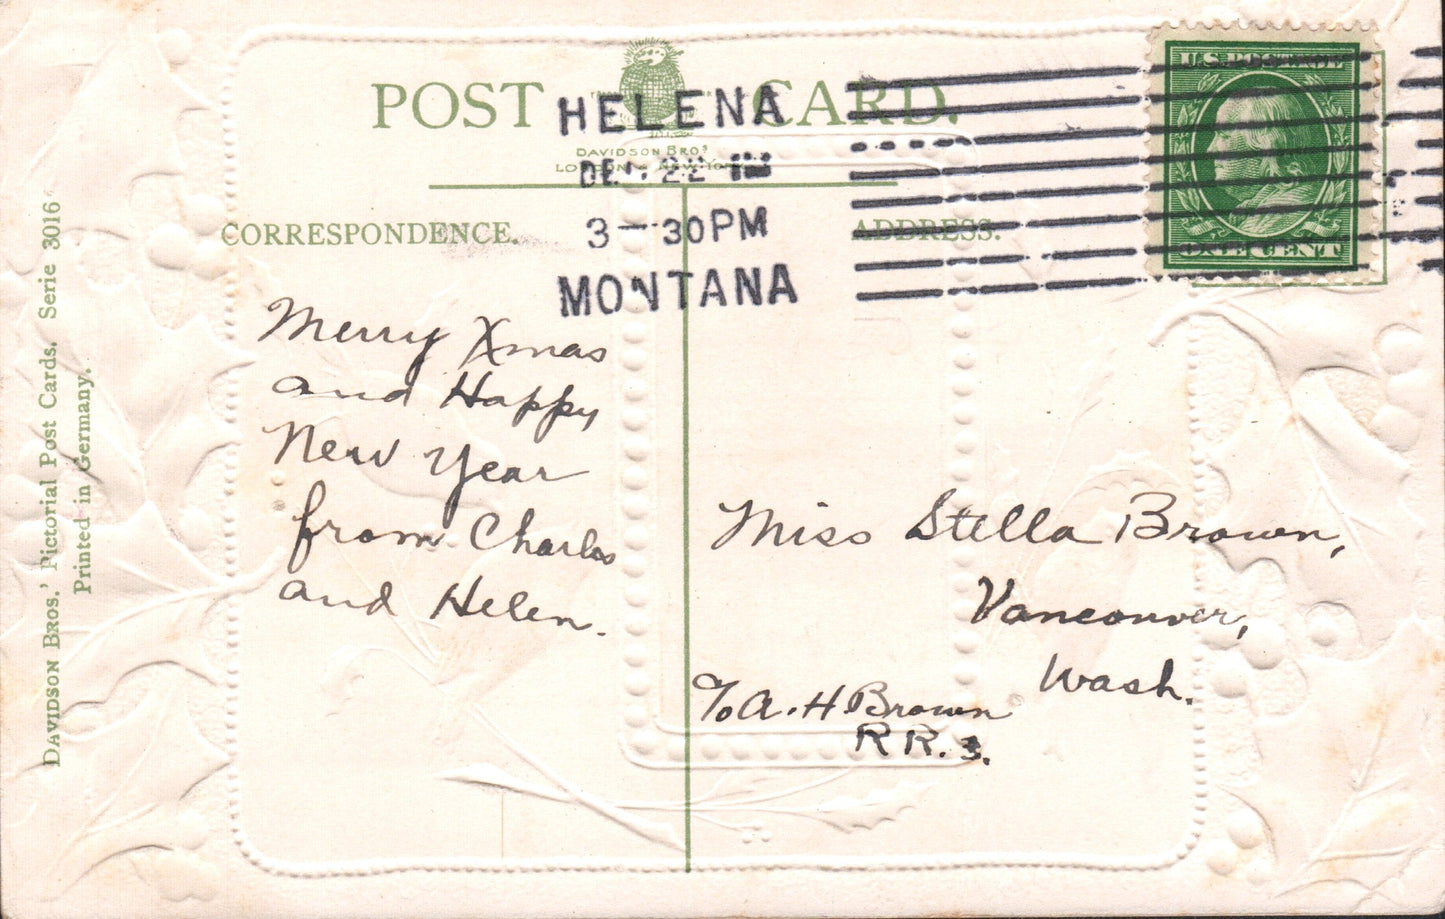 POST CARD.
DAVIDSON BROS
HELENA
DEC 22
3-30PM
MONTANA
U.S. POSTAGE
ONE CENT
CORRESPONDENCE.
ADDRESS.
Merry Xmas
and Happy
New Year
from Charles
and Helen.
Miss Stella Brown,
Vancouver,
Wash.
c/o A. H Brown
R R. 3.
DAVIDSON BROS.' Pictorial Post Cards. Serie 3016
Printed in Germany.